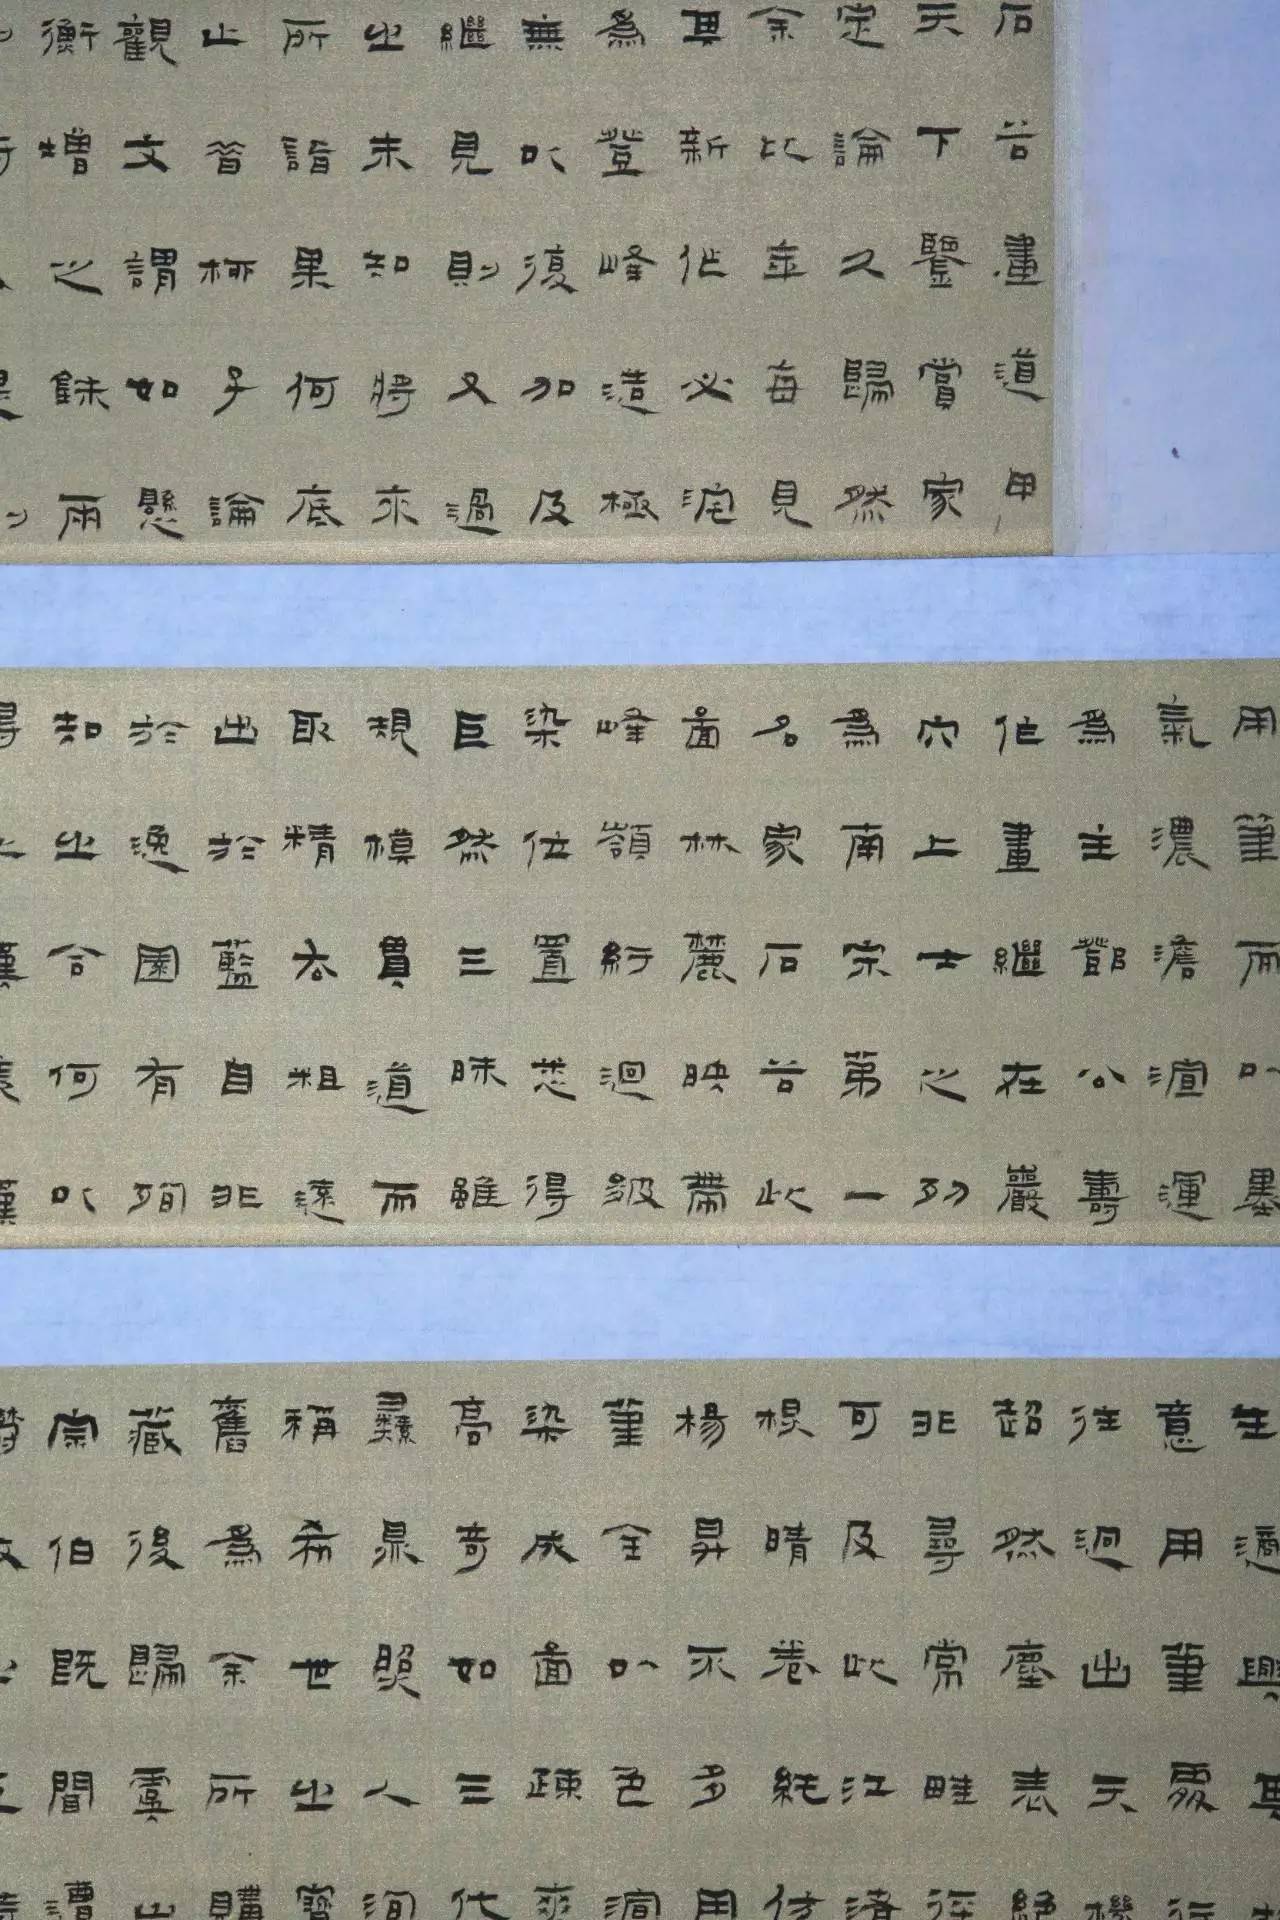 石谷畫道甲
天下鑒賞家
定論久歸然
余比年每見
其新作必
為登峰造極
無以復加及
繼見則又過
之未知將來
所詣果何底
止昔柳子論
觀文謂如懸
衡增之銖兩
用筆而以墨
氣濃澹渲運
為主鄧公壽
作畫繼在巖
穴上士之列
為南宗第一
名家石谷此
圖林麓映帶
峰嶺紆迴皴
染位置悉得
巨然三昧雖
規模貫道而
取精去粗遠
出於藍自非
於逸園有殉
知之合何以
生適興其
意用筆
往迥出天機
超然塵表絕
非尋常畦徑
可及此江渚
晴卷純仿
楊昇不多用
筆全以色渲
染成圖疏爽
高奇如三代
彝鼎照人洵
稱希世之寶
舊為余所購
藏後歸虞山
宗伯既聞遭